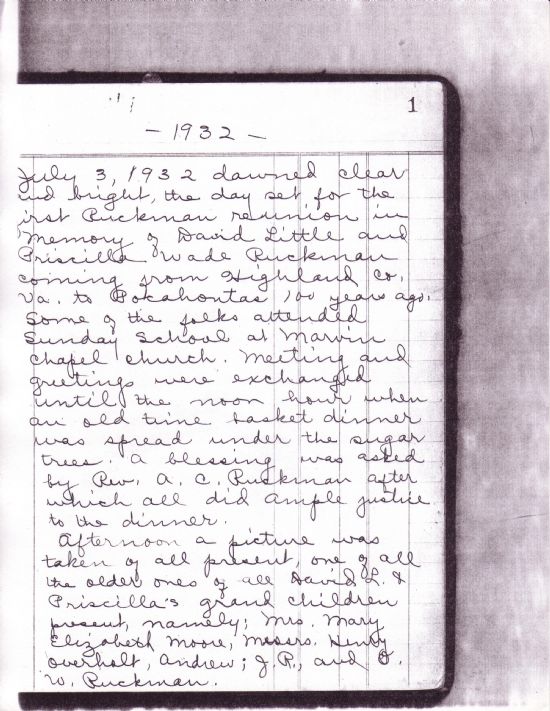 1
- 1932 -
July 3, 1932 dawned clear
and bright, the day set for the
first Ruckman reunion in
memory of David Little and
Priscilla Wade Ruckman
coming from Highland Co.
Va. to Pocahontas 100 years ago.
Some of the folks attended
Sunday School at Marvin
Chapel church. Meeting and
greetings were exchanged
until the noon hour when
an old time basket dinner
was spread under the sugar
trees. A blessing was asked
by Rev. A. C. Ruckman after
which all did ample justice
to the dinner.
Afternoon a picture was
taken of all present, one of all
the older ones of all David L. &
Priscilla's grand children
present, namely; Mrs. Mary
Elizabeth Moore, Messrs. Henry
Overholt, Andrew; J. P., and O.
W. Ruckman.